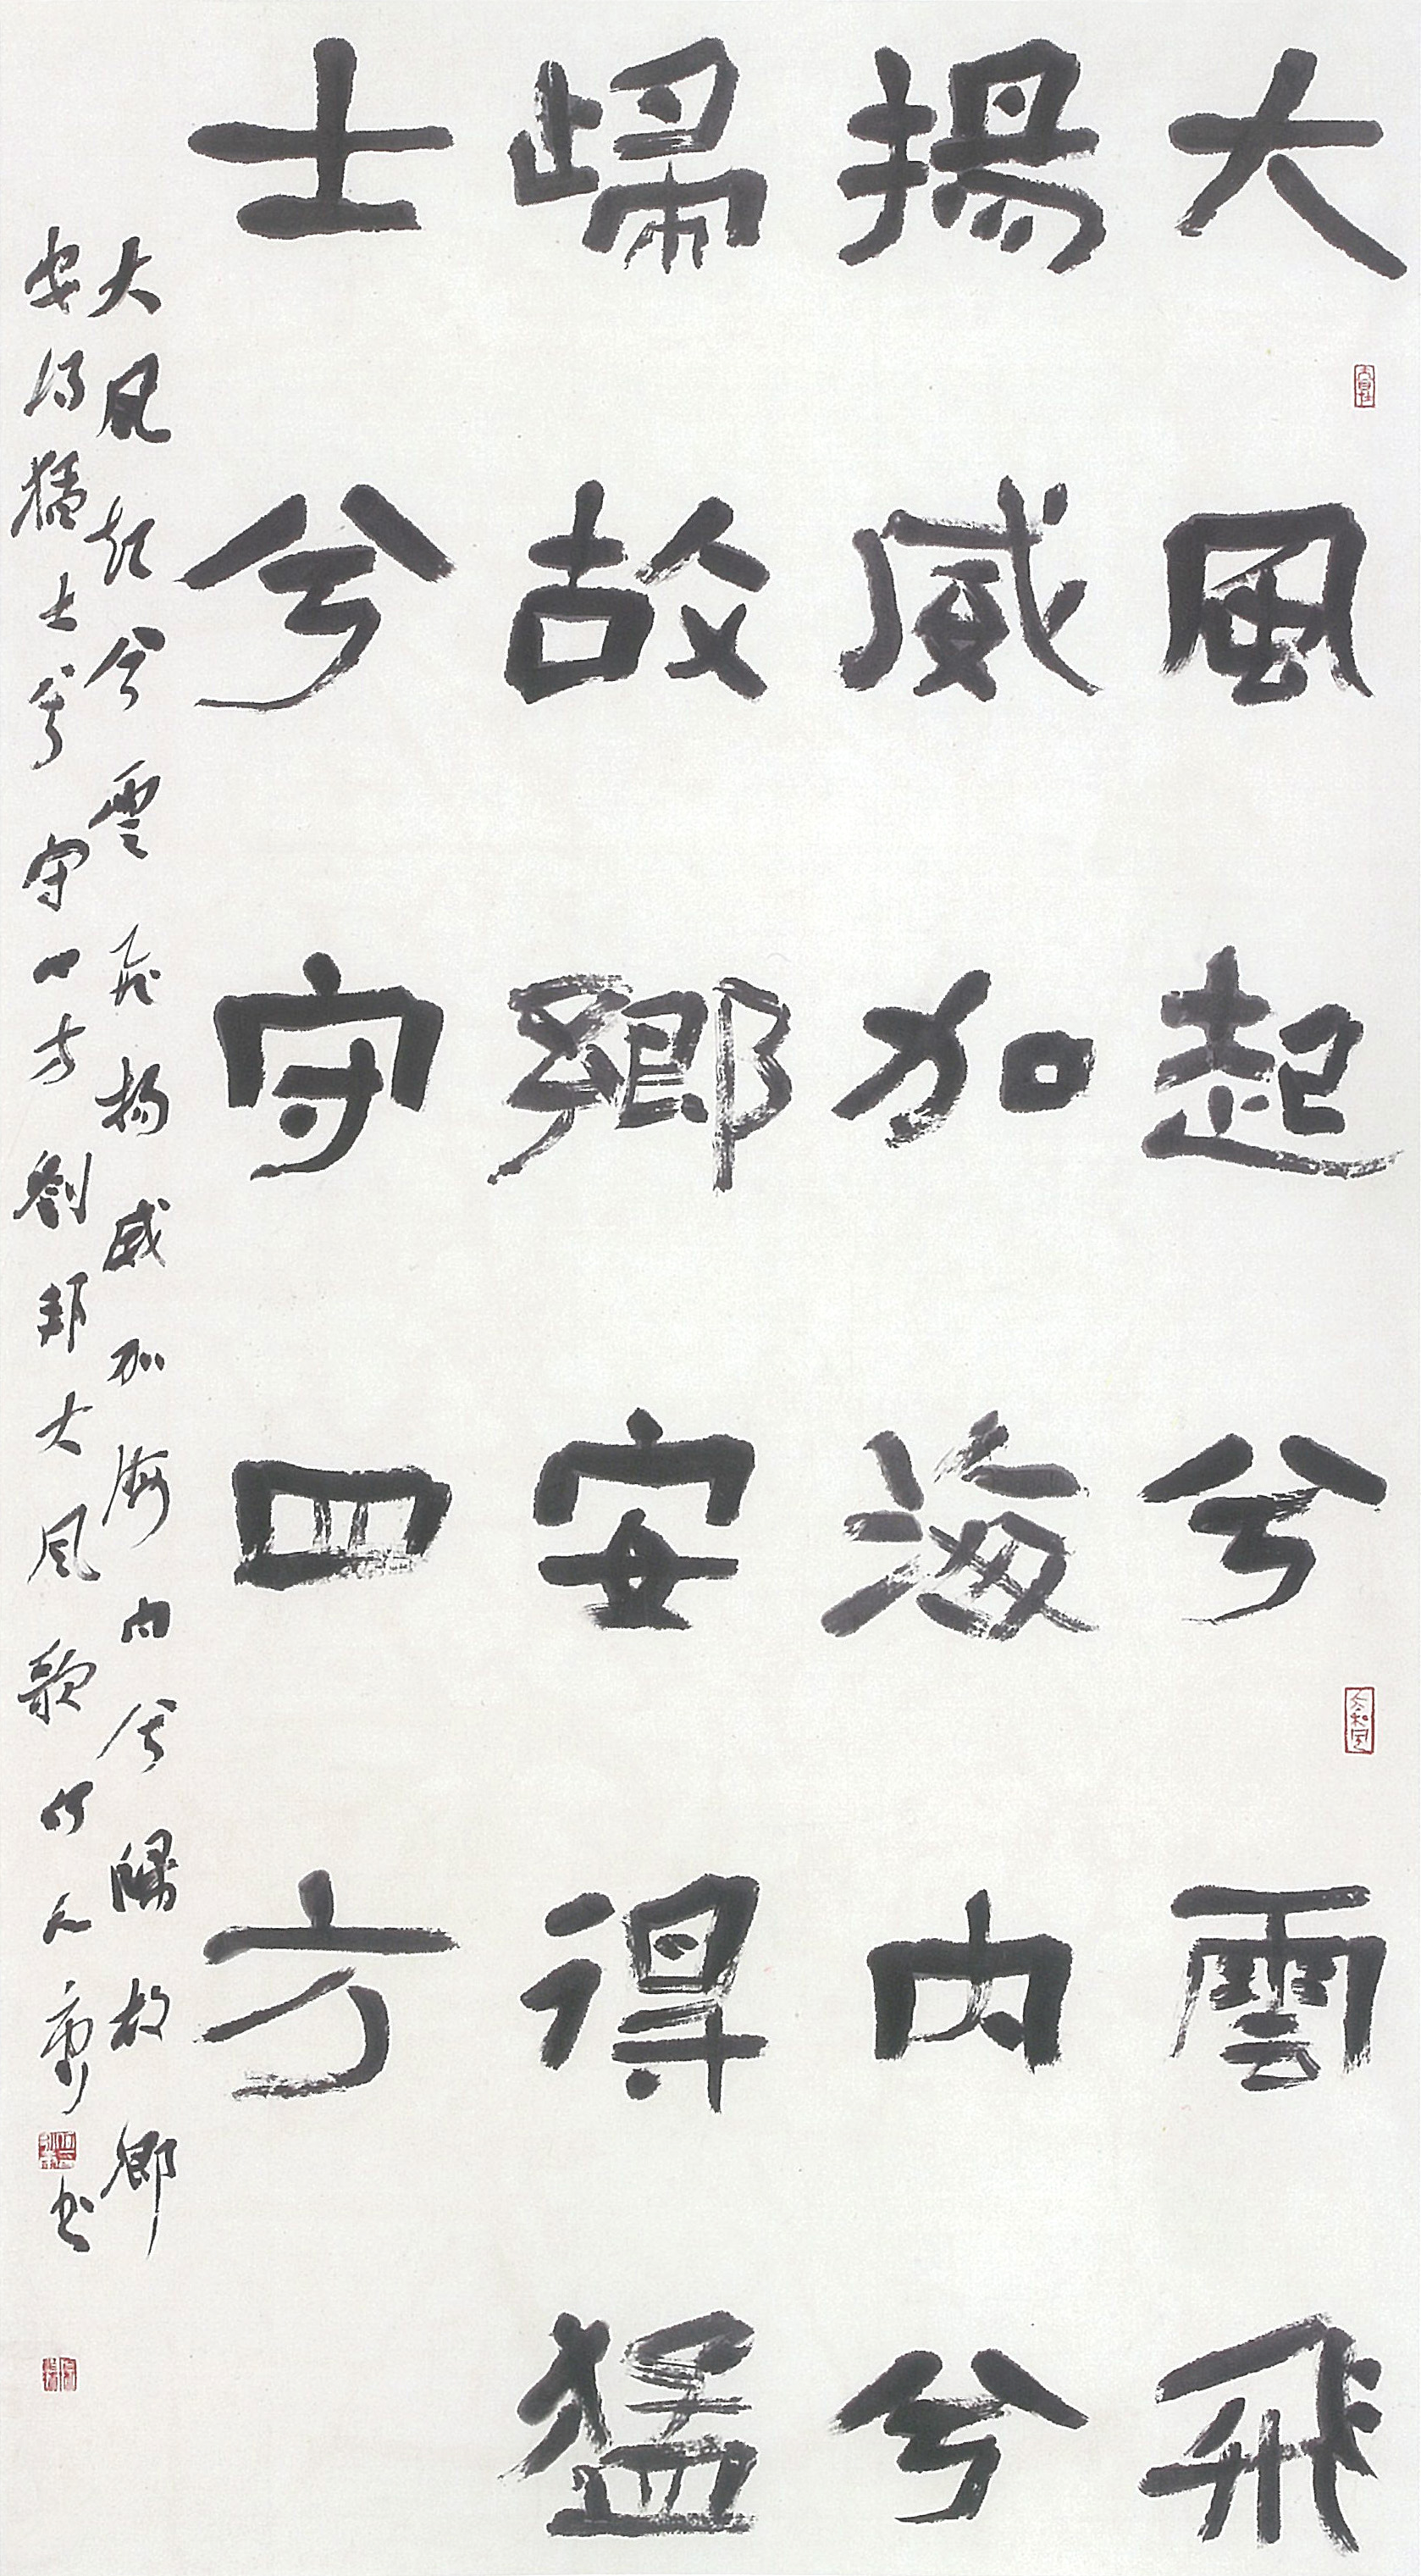 大風起兮雲飛
揚威加海內兮
歸故鄉安得猛
士兮守四方
大風起兮雲飛揚威加海內兮歸故鄉
安得猛士兮守四方劉邦大風歌
書